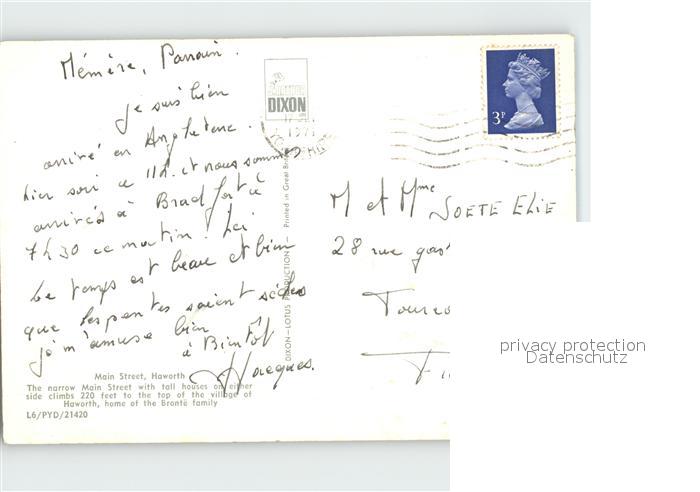 Mémère, Parrain.
Je suis bien
arrivé en Angleterre.
hier soir a 11h. et nous sommes
arrivés à Bradford à
7h30 ce matin. Ici
Le temps est beau et bien
que les pentes soient
je m'amuse bien
à Bientôt
Jacques.
Main Street, Haworth
The narrow Main Street with tall houses on either
side climbs 220 feet to the top of the village of
Haworth, home of the Brontë family
L6/PYD/21420
DIXON
1971
DIXON-LOTUS PRODUCTION - Printed in Great Britain
3P
M et Mme SOETE ELIE
28 rue
Tourco
privacy protection
Datenschutz